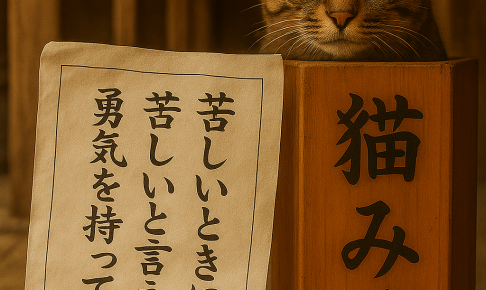 苦しいときに
苦しいと言え
勇気を持って
猫み